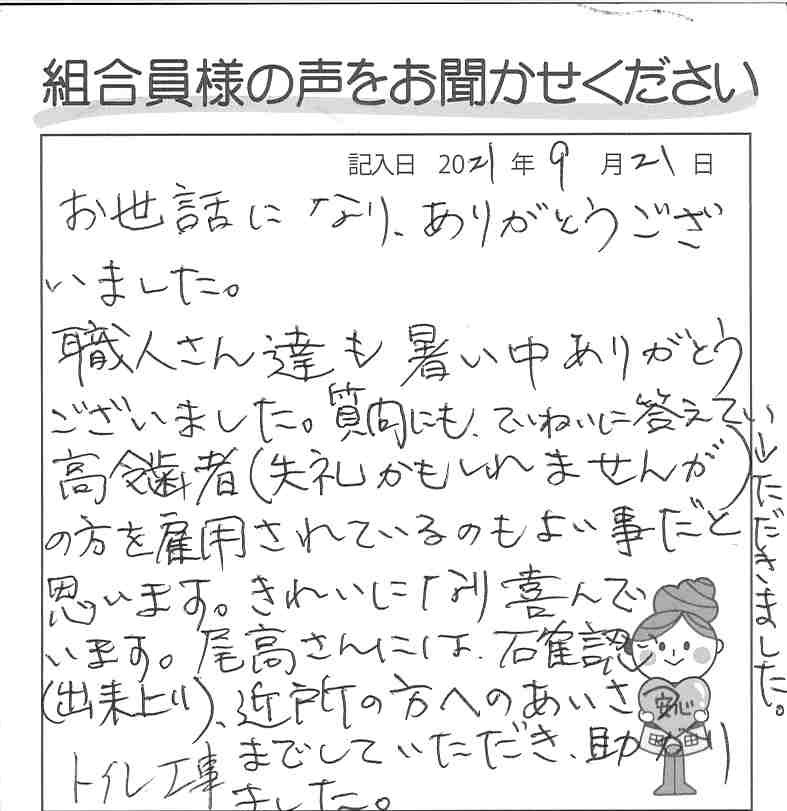 組合員様の声をお聞かせください
記入日 2021年9月21日
お世話になり、ありがとうござ
いました。
職人さん達も暑い中ありがとう
ございました。質問にも、ていねいに答えてい
ただきました。
高齢者(失礼かもしれませんが)
の方を雇用されているのもよい事だと
思います。きれいになり喜んで
います。尾高さんには、確認
(出来上り)、近所の方へのあいさつ
安心
までしていただき、助かり
トイレ工事
ました。